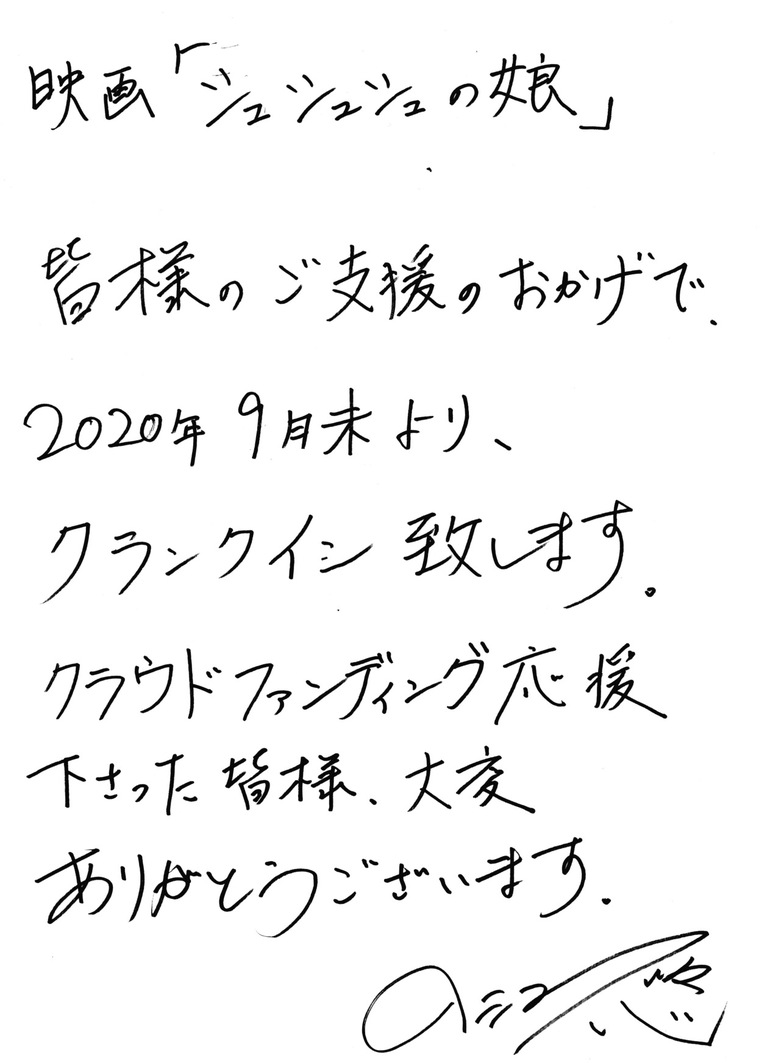 映画「シュシュシュの娘」
皆様のご支援のおかげで、
2020年9月末より、
クランクイン致します。
クラウドファンディング応援
下さった皆様、大変
ありがとうございます。